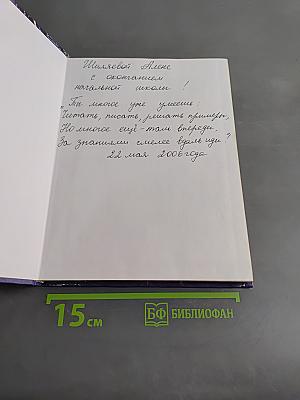 Шиляевой Алене
с окончанием
начальной школы!
"Ты многое уже умеешь:
Читать, писать, решать примеры,
Но многое ещё - там впереди.
За знаниями смелее вдаль иди"
22 мая 2006 года
15 см
БФ БИБЛИОФАН